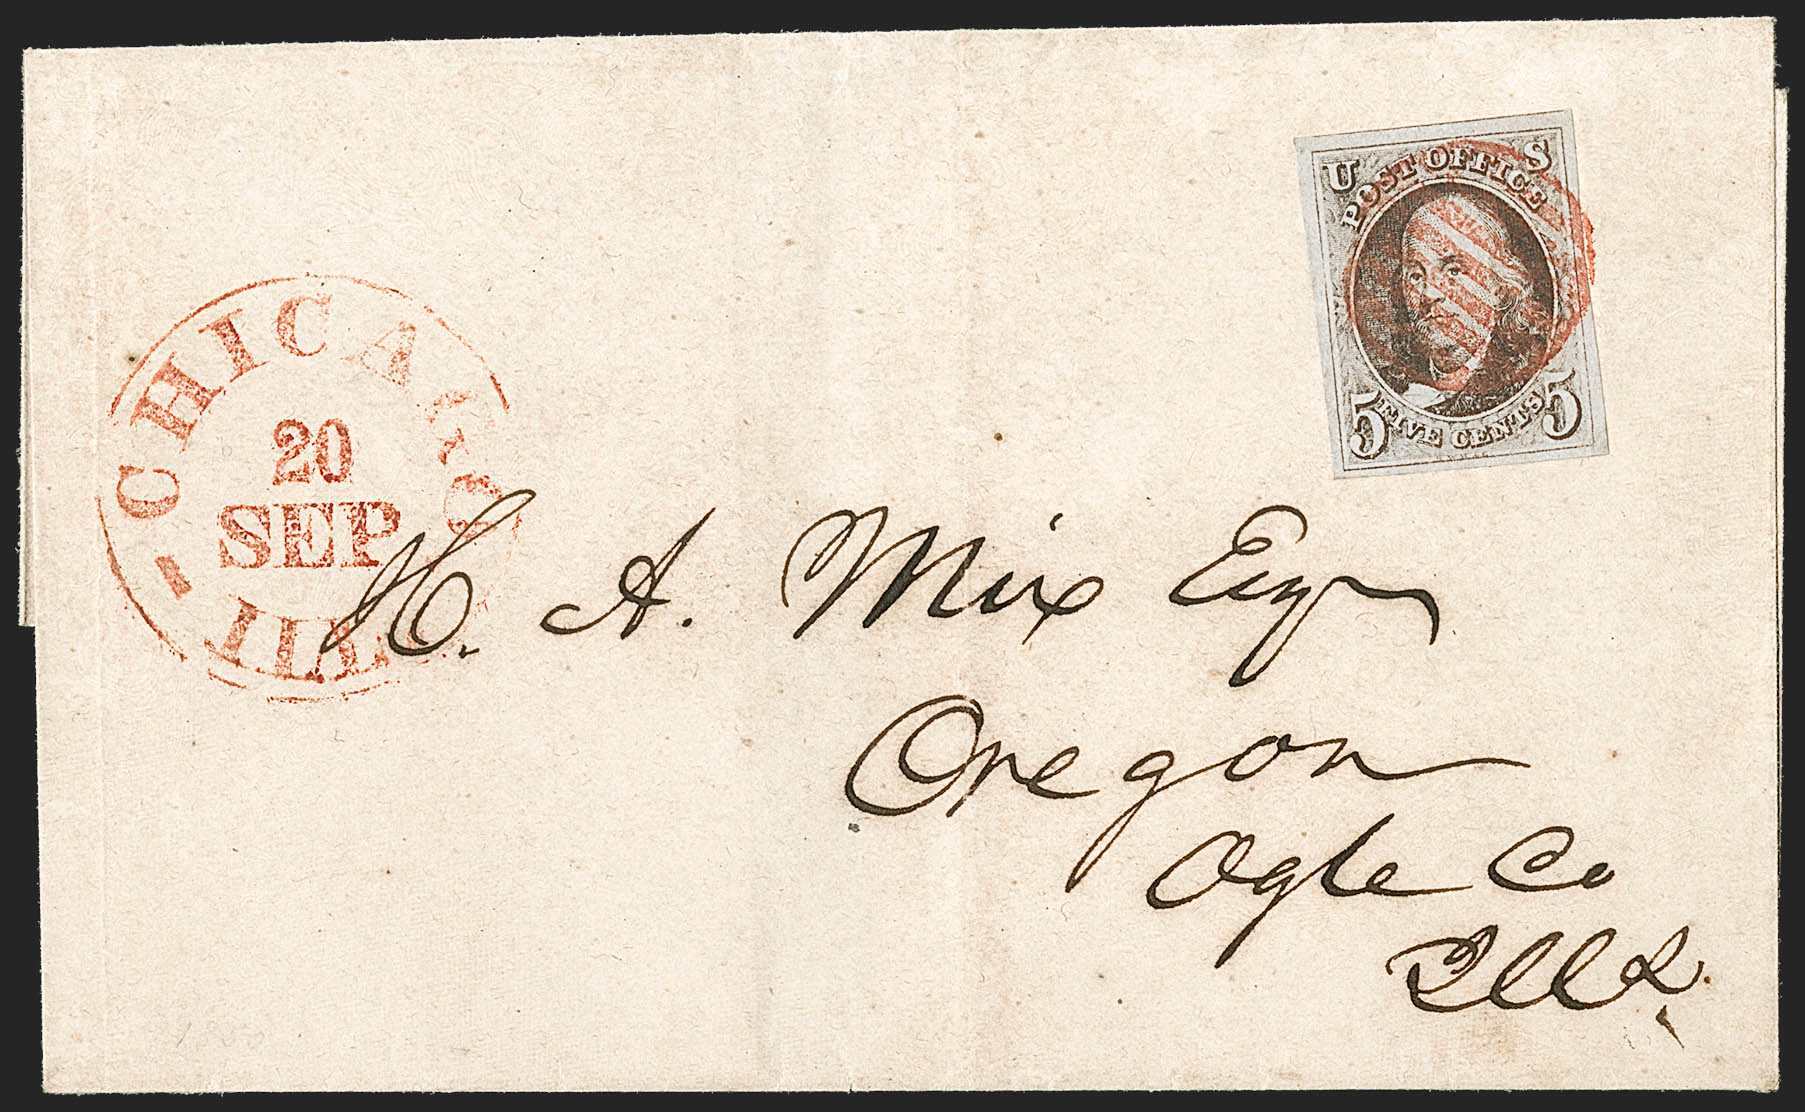 U S
POST OFFICE
5 FIVE CENTS 5
CHICAGO
20
SEP
ILL.
H. A. Mix Esqr
Oregon
Ogle Co
Ills.
1850